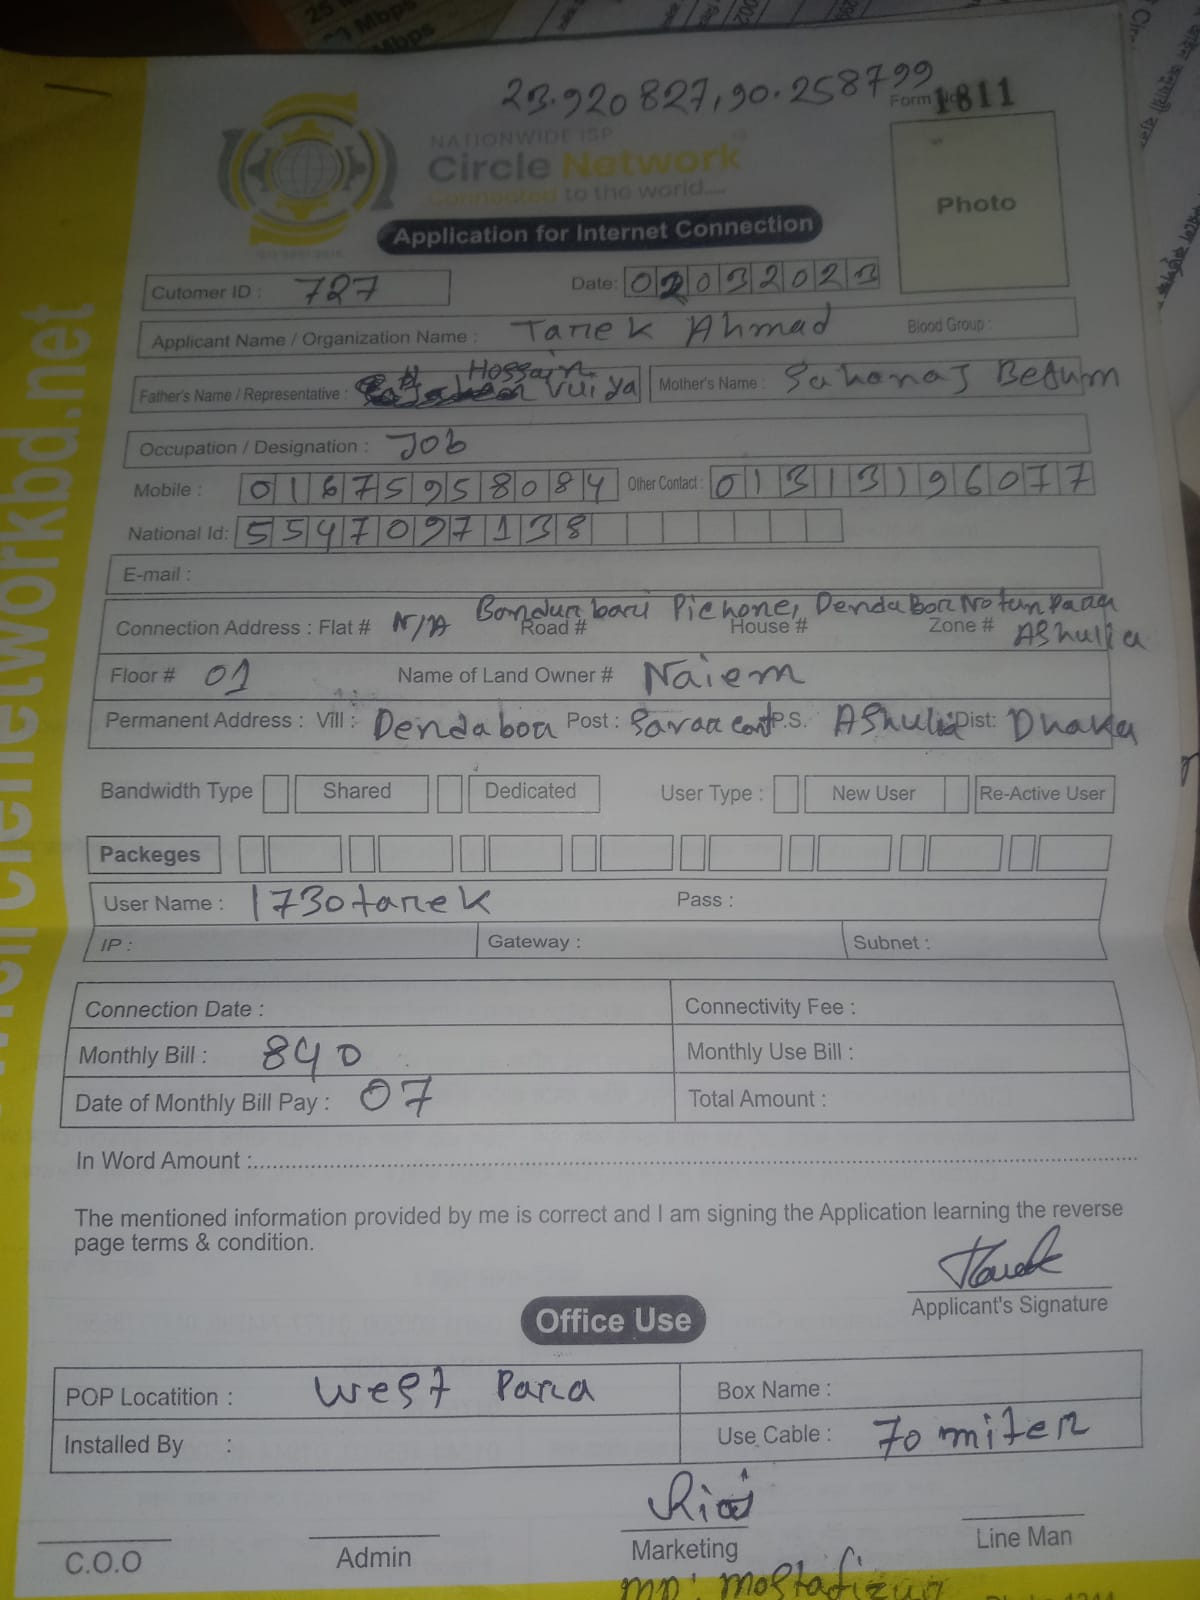 23.920827, 90.258799
Form No 1811
NATIONWIDE ISP
Circle Network
Connected to the world....
Photo
Application for Internet Connection
Cutomer ID : 727 Date: 02032023
Applicant Name / Organization Name : Tarek Ahmad Blood Group :
Father's Name / Representative : Hossain Vuiya Mother's Name : Sahanaj Begum
Occupation / Designation : Job
Mobile : 01675958084 Other Contact : 01313196077
National Id: 5547097138
E-mail :
Connection Address : Flat # N/A Road # House # Zone #
Bandur bari Pichone, Dendabor Notun Para Ashulia
Floor # 01 Name of Land Owner # Naiem
Permanent Address : Vill : Dendabor Post : Savar Cant P.S. Ashulia Dist: Dhaka
Bandwidth Type Shared Dedicated User Type : New User Re-Active User
Packeges
User Name : 1730tarek Pass :
IP : Gateway : Subnet :
Connection Date : Connectivity Fee :
Monthly Bill : 840 Monthly Use Bill :
Date of Monthly Bill Pay : 07 Total Amount :
In Word Amount :
The mentioned information provided by me is correct and I am signing the Application learning the reverse
page terms & condition.
Tarek
Applicant's Signature
Office Use
POP Locatition : West Para Box Name :
Installed By : Use Cable : 70 miter
C.O.O Admin Marketing Line Man
MD: Mostafizur